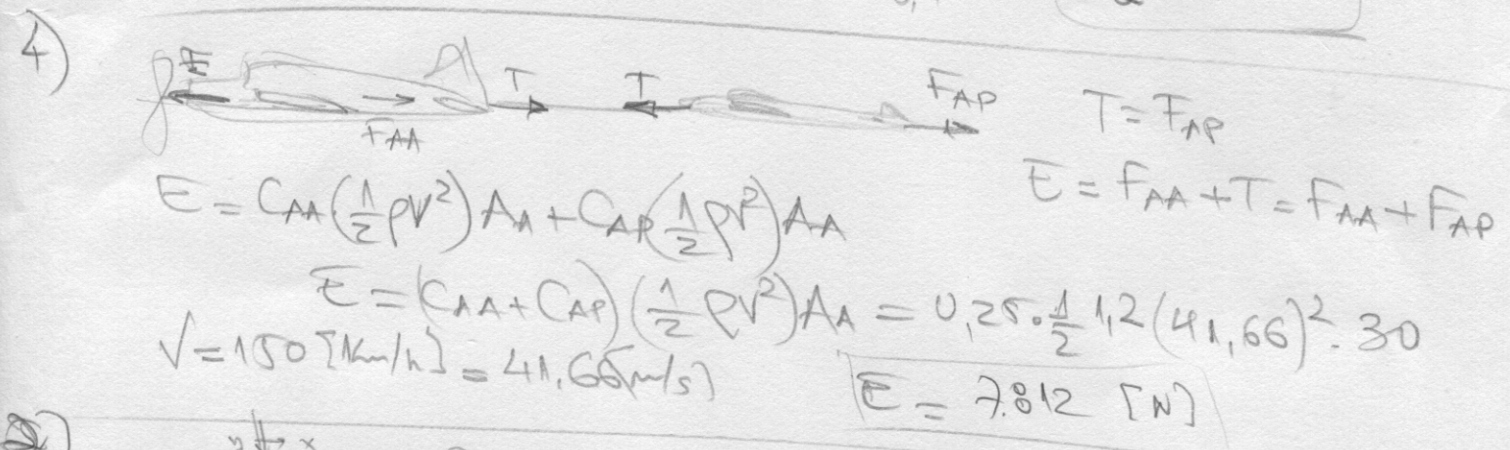 4)
E T T F_AP
F_AA
T = F_AP
E = F_AA + T = F_AA + F_AP
E = C_AA (1/2 ρV²) A_A + C_AP (1/2 ρV²) A_A
E = (C_AA + C_AP) (1/2 ρV²) A_A = 0,25 · 1/2 1,2 (41,66)² · 30
V = 150 [Km/h] = 41,66 [m/s]
E = 7.812 [N]
x